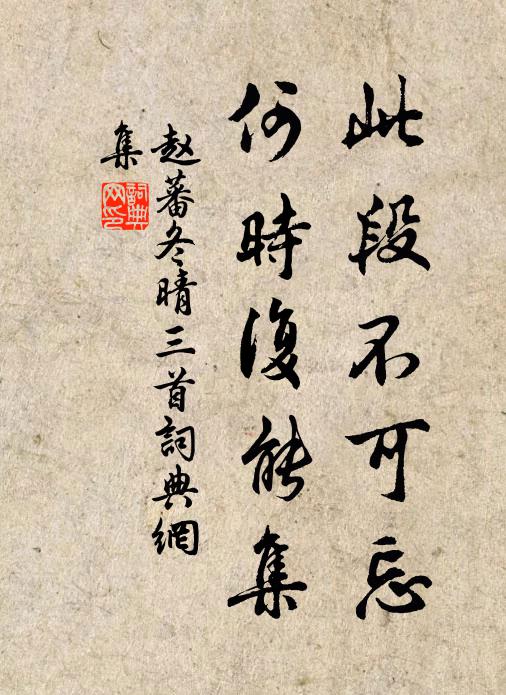 此段不可忘
何時復能集
赵蕃冬晴三首詞典網
集
詞典网印